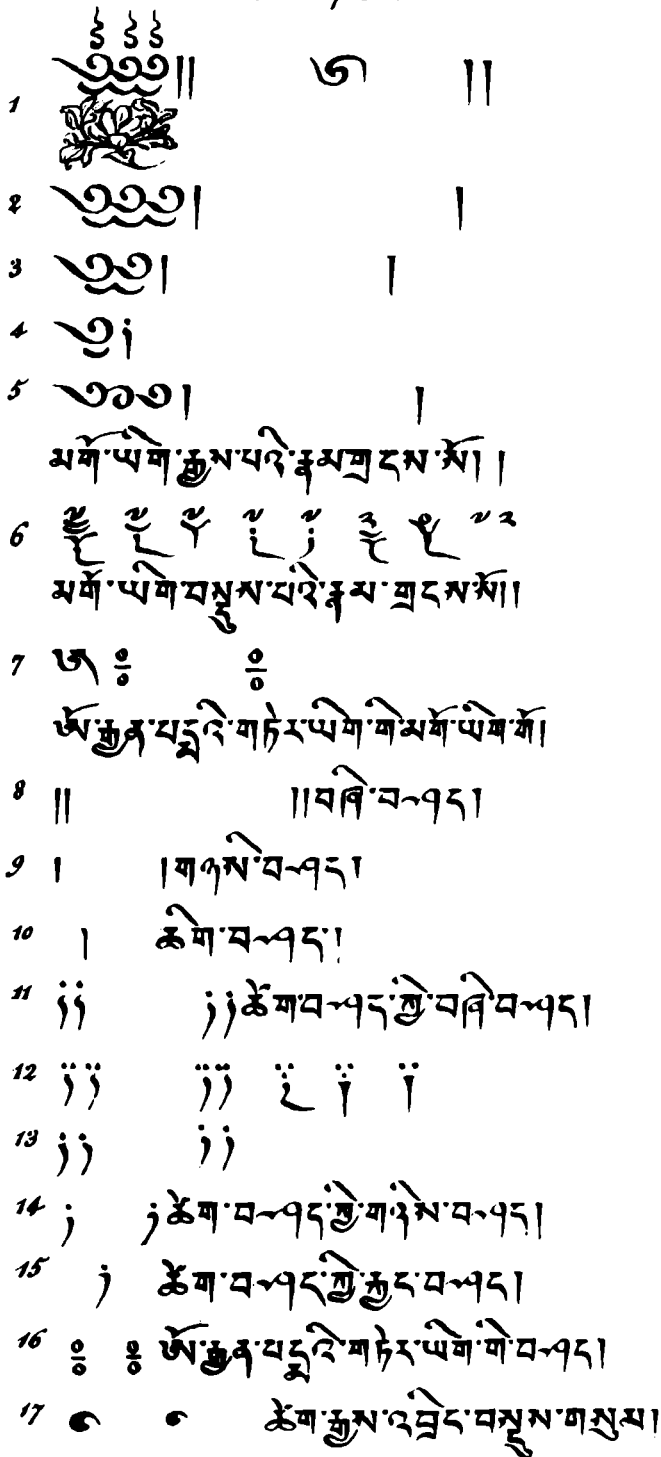 1 ༄༅༅།། ༄ །།
2 ༄༅༅། །
3 ༄༅། །
4 ༄།
5 ༄༅༅། །
མགོ་ཡིག་རྒྱས་པའི་རྣམ་གྲངས་སོ། །
6
མགོ་ཡིག་བསྡུས་པའི་རྣམ་གྲངས་སོ།།
7 ༔ ༔
ཨོ་རྒྱན་པདྨའི་གཏེར་ཡིག་གི་མགོ་ཡིག་གོ།
8 །། །།བཞི་བཤད།
9 ། །གཉིས་བཤད།
10 ། ཆིག་བཤད།
11 ༎ ༎ཚེག་བཤད་ཀྱི་བཞི་བཤད།
12
13
14 ༑ ༑ཚེག་བཤད་ཀྱི་གཉིས་བཤད།
15 ༑ ཚེག་བཤད་ཀྱི་རྐྱང་བཤད།
16 ༔ ༔ ཨོ་རྒྱན་པདྨའི་གཏེར་ཡིག་གི་བཤད།
17 ་ ་ ཚེག་རྒྱས་འབྲིང་བསྡུས་གསུམ།